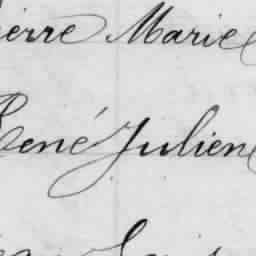 ierre Marie
René Julien